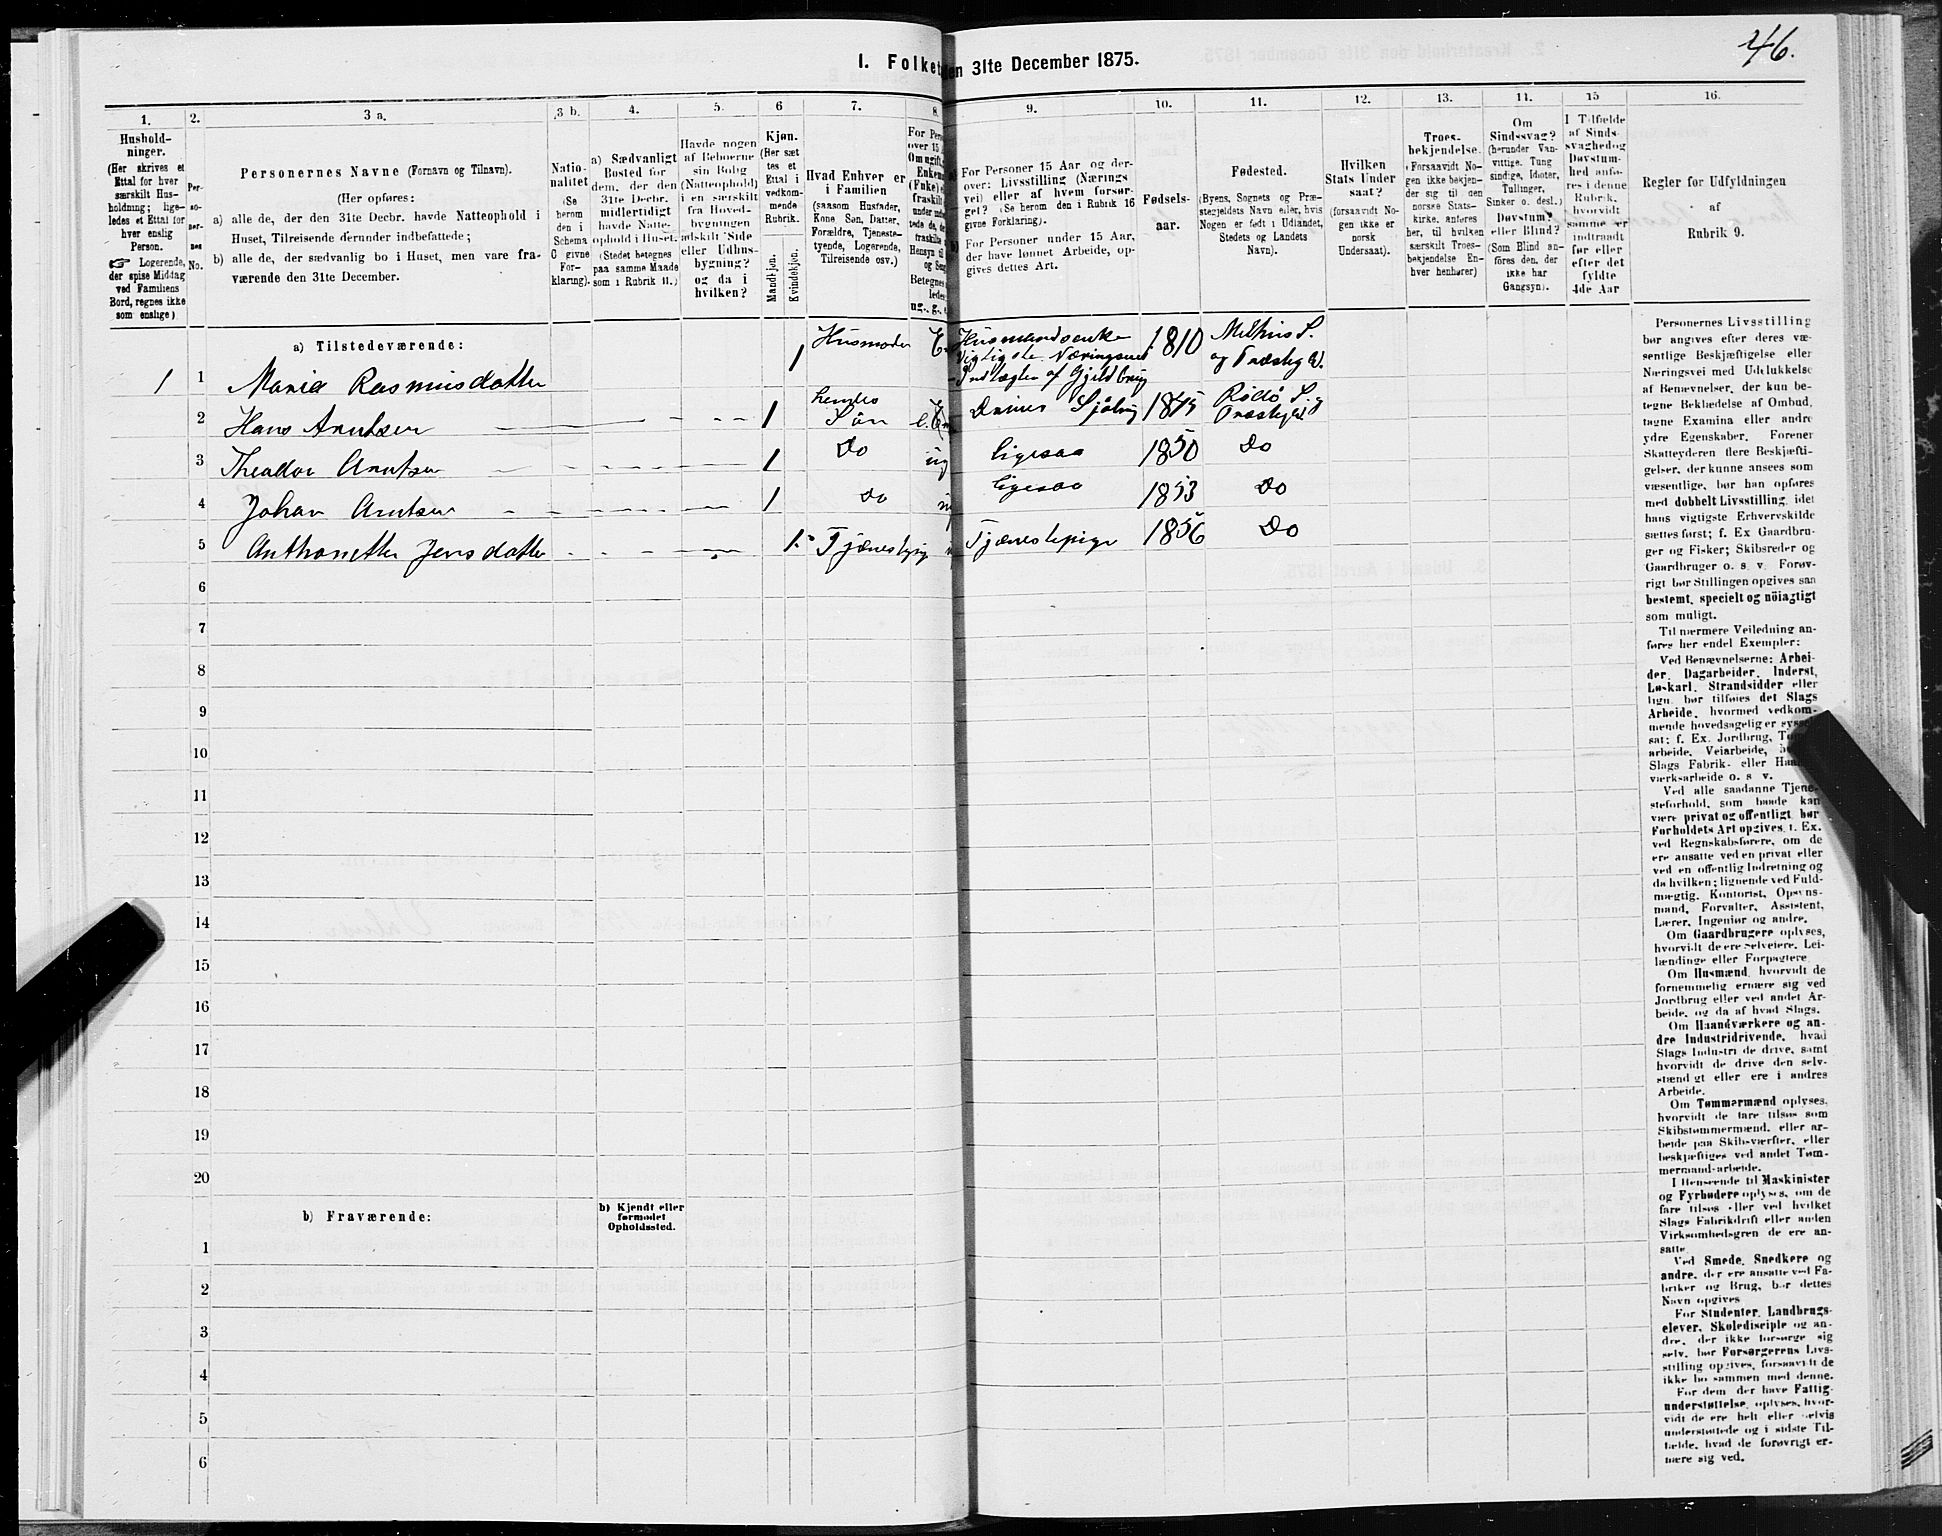 46.
I. Folket
en 31te December 1875.
1. 2. 3 a. 3 b. 4. 5. 6 7. 8.
9. 10. 11. 12. 13. 14. 15 16.
Hushold-
ninger.
(Her skrives et
Ettal for hver
særskilt Hus-
holdning; lige-
ledes et Ettal for
hver enslig
Person.
☞ Logerende,
der spise Middag
ved Familiens
Bord, regnes ikke
som enslige)
Per-
so-
ner-
nes
No.
Personernes Navne (Fornavn og Tilnavn).
(Her opføres:
a) alle de, der den 31te Decbr. havde Natteophold i
Huset, Tilreisende derunder indbefattede;
b) alle de, der sædvanlig bo i Huset, men vare fra-
værende den 31te December.
Natio-
nalitet
(Se
herom
den i
Schema
C givne
For-
klaring).
a) Sædvanligt
Bosted for
dem, der den
31te Decbr.
midlertidigt
havde Natte-
ophold i Huset.
(Stedet betegnes
paa samme Maade
som i Rubrik 11.)
Havde nogen
af Beboerne
sin Bolig
(Natteophold)
i en særskilt
fra Hoved-
bygningen
adskilt Side
eller Udhus-
bygning?
og da i
hvilken?
Kjøn.
(Her sæt
tes et
Ettal i
vedkom-
mende
Rubrik.
Mandkjøn.
Kvindekjøn.
Hvad Enhver er
i Familien
(saasom Husfader,
Kone, Søn, Datter,
Forældre, Tjeneste-
tyende, Logerende,
Tilreisende osv.)
For Pers
over 15
Om ugift,
Enkem
(Enke)
fraskilt
For Personer 15 Aar og der-
over: Livsstilling (Nærings
vei) eller af hvem forsør-
get? (Se herom den i Rubrik 16
givne Forklaring).
For Personer under 15 Aar,
der have lønnet Arbeide, op-
gives dettes Art.
Fødsels-
aar.
Fødested.
(Byens, Sognets og Præ-
stegjeldets Navn eller, hvis
Nogen er født i Udlandet,
Stedets og Landets
Navn).
Hvilken
Stats Under
saat?
(forsaavidt No-
gen ikke er
norsk
Undersaat).
Troes-
bekjendelse.
(Forsaavidt No-
gen ikke bekjen-
der sig til den
norske Stats-
kirke, anføres
her, til hvilken
særskilt Troes-
bekjendelse En-
hver henhører)
Om
Sindssvag?
(herunder Van-
vittige, Tung
sindige, Idioter,
Tullinger,
Sinker o. desl.)
Døvstum?
eller Blind?
(Som Blind an-
føres den, der
ikke har
Gangsyn).
I Tilfælde
af Sinds-
svaghed og
Døvstum-
hed anfø-
res i denne
Rubrik,
hvorvidt
samme er
indtraadt
før eller
efter det
fyldte
4de Aar
Regler for Udfyldningen
af
Rubrik 9.
a) Tilstedeværende:
1 1 Maria Rasmusdatter 1 Husmoder E Husmandsenke 1810 Melhus S.
Vigtigste Næringsvei og Præstegd.
Indtægter af Gjeldbrug
2 Hans Arntsen 1 hendes Søn 1845 Rödö S. og Præstegd
3 Theodor Arntsen 1 Do ug ligesaa 1850 Do
4 Johan Arntsen 1 Do ligesaa 1853 Do
5 Anthonette Jensdatter 1 Tjenestepige Tjenestepige 1856 Do
6
7
8
9
10
11
12
13
14
15
16
17
18
19
20
b) Fraværende:
b) Kjendt eller
formodet
Opholdssted.
1
2
3
4
5
6
Personernes Livsstilling
bør angives efter deres væ-
sentlige Beskjæftigelse eller
Næringsvei med Udelukkelse
af Benævnelser, der kun be-
tegne Beklædelse af Ombud,
tagne Examina eller andre
ydre Egenskaber. Forener
Skatteyderen flere Beskjæfti-
gelser, der kunne ansees som
væsentlige, bør han opføres
med dobbelt Livsstilling, idet
hans vigtigste Erhvervskilde
sættes først; f. Ex Gaardbru-
ger og Fisker; Skibsreder og
Gaardbruger o. s. v. Forøv-
rigt bør Stillingen opgives saa
bestemt, specielt og nöiagtigt
som muligt.
Til nærmere Veiledning an-
føres her endel Exempler:
Ved Benævnelserne: Arbei-
der, Dagarbeider, Inderst,
Løskarl, Strandsidder eller
lign. bør tilføies det Slags
Arbeide, hvormed vedkom-
mende hovedsagelig er syssel
sat; f. Ex. Jordbrug, Tøm
arbeide, Veiarbeide,
Slags Fabrik- eller Haand
værksarbeide o. s. v.
Ved alle saadanne Tjene-
steforhold, som baade kan
være privat og offentligt, bør
Forholdets Art opgives, t. Ex.
ved Regnskabsførere, om de
ere ansatte ved en privat eller
ved en offentlig Indretning og
da hvilken; lignende ved Fuld-
mægtig, Kontorist, Opsyns-
mand, Forvalter, Assistent,
Lærer, Ingeniør og andre.
Om Gaardbrugere oplyses,
hvorvidt de ere selveiere, Lei-
lændinge eller Forpagtere
Om Husmænd, hvorvidt de
fornemmelig ernære sig ved
Jordbrug eller ved andet Ar-
beide, og da af hvad Slags.
Om Haandværkere og an-
dre Industridrivende, hvad
Slags Industri de drive, samt
hvorvidt de drive den selv-
stændigt eller ere i andres
Arbeide.
Om Tømmermænd oplyses,
hvorvidt de fare tilsøs som
Skibstømmermænd, eller ar-
beide paa Skibsværfter, eller
beskjæftiges ved andet Tøm-
mermandsarbeide.
I Henseende til Maskinister
og Fyrbødere oplyses, om de
fare tilsøs eller ved hvilket
Slags Fabrikdrift eller anden
Virksomhedsgren de ere an-
satte
Ved Smede, Snedkere og
andre, der ere ansatte ved Fa-
briker og Brug, bør dettes
Navn opgives
For Studenter, Landbrugs-
elever, Skoledisciple og an-
dre, der ikke forsørge sig
selv, bør Forsørgerens Livs-
stilling opgives, forsaavidt de
ikke bo sammen med denne.
For dem, der have Fattig-
understøttelse, oplyses, hvor-
vidt de ere helt eller delvis
understøttede og i sidste Til-
fælde, hvad de forøvrigt er-
nære sig ved.